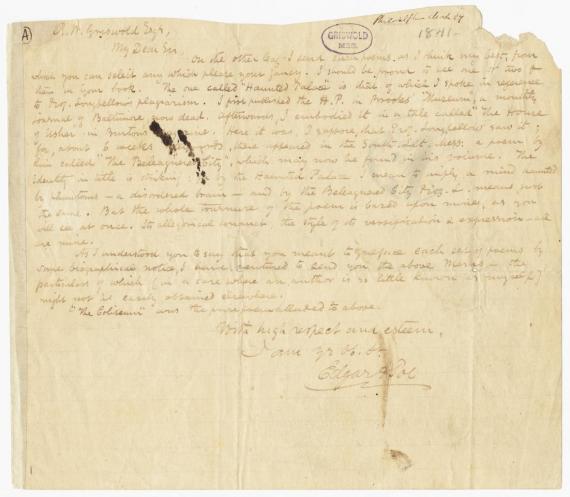 A
R. W. Griswold Esqr.
GRISWOLD
MSS.
1841
My Dear Sir,
On the other leaf I send such poems as I think my best, from
which you can select any which please your fancy. I should be proud to see one or two of
them in your book. The one called "Haunted Palace" is that of which I spoke in reference
to Prof. Longfellow's plagiarism. I first published the H.P. in Brooks' "Museum", a monthly
journal of Baltimore, now dead. Afterwards, I embodied it in a tale called "The House
of Usher" in Burton's Magazine. Here it was, I suppose, that Prof. Longfellow saw it;
for, about 6 weeks afterwards, there appeared in the South. Lit. Mess: a poem by
him called "The Beleaguered City", which may now be found in his volume. The
identity in title is striking; by the Haunted Palace I mean to imply a mind haunted
by phantoms — a disordered brain — and by the Beleaguered City Prof. L. means just
the same. But the whole tournure of the poem is based upon mine, as you
will see at once. Its allegorical conduct, the style of its versification & expression — all
are mine.
As I understood you to say that you meant to preface each set of poems by
some biographical notice, I have ventured to send you the above Memo — the
particulars of which (in a case where an author is so little known as myself)
might not be easily obtained elsewhere.
"The Coliseum" was the prize poem alluded to above.
With high respect and esteem,
I am yr Ob. St.
Edgar A Poe